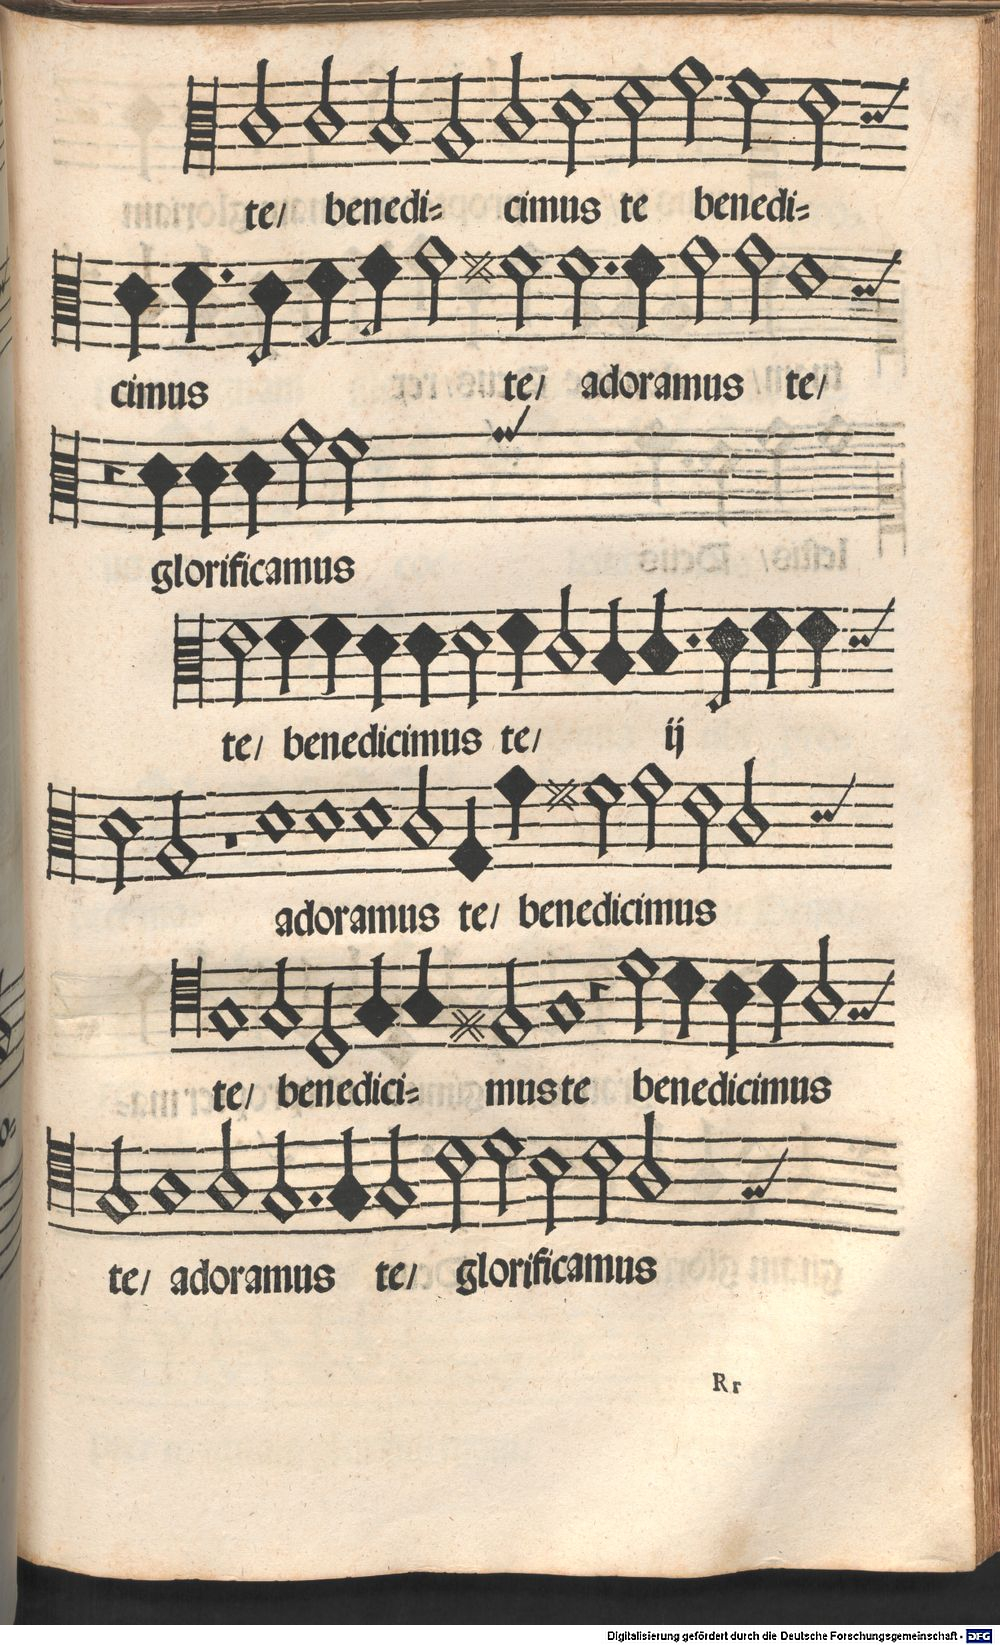 te/ benedi= cimus te benedi=
cimus te/ adoramus te/
glorificamus
te/ benedicimus te/ ij
adoramus te/ benedicimus
te/ benedici= muste benedicimus
te/ adoramus te/ glorificamus
Rr
Digitalisierung gefördert durch die Deutsche Forschungsgemeinschaft - DFG